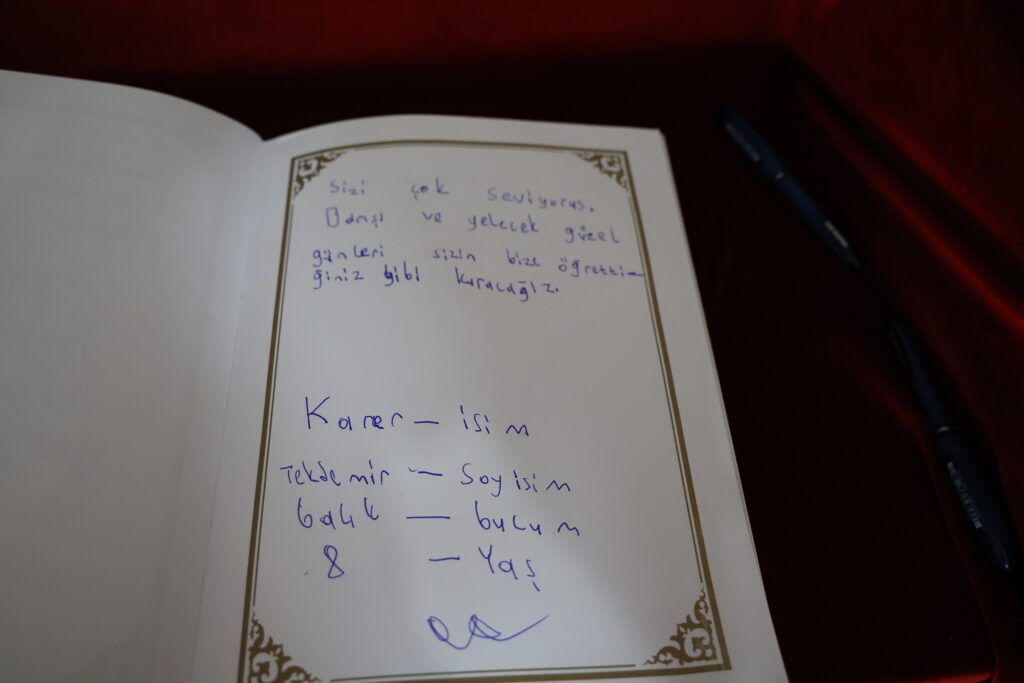 sizi çok seviyorus.
Barışı ve yelecek güzel
günleri sizin bize öğretti-
ğiniz gibi kuracağız.
Karer — isim
Tekdemir — Soyisim
balık — bucum
8 — Yaş